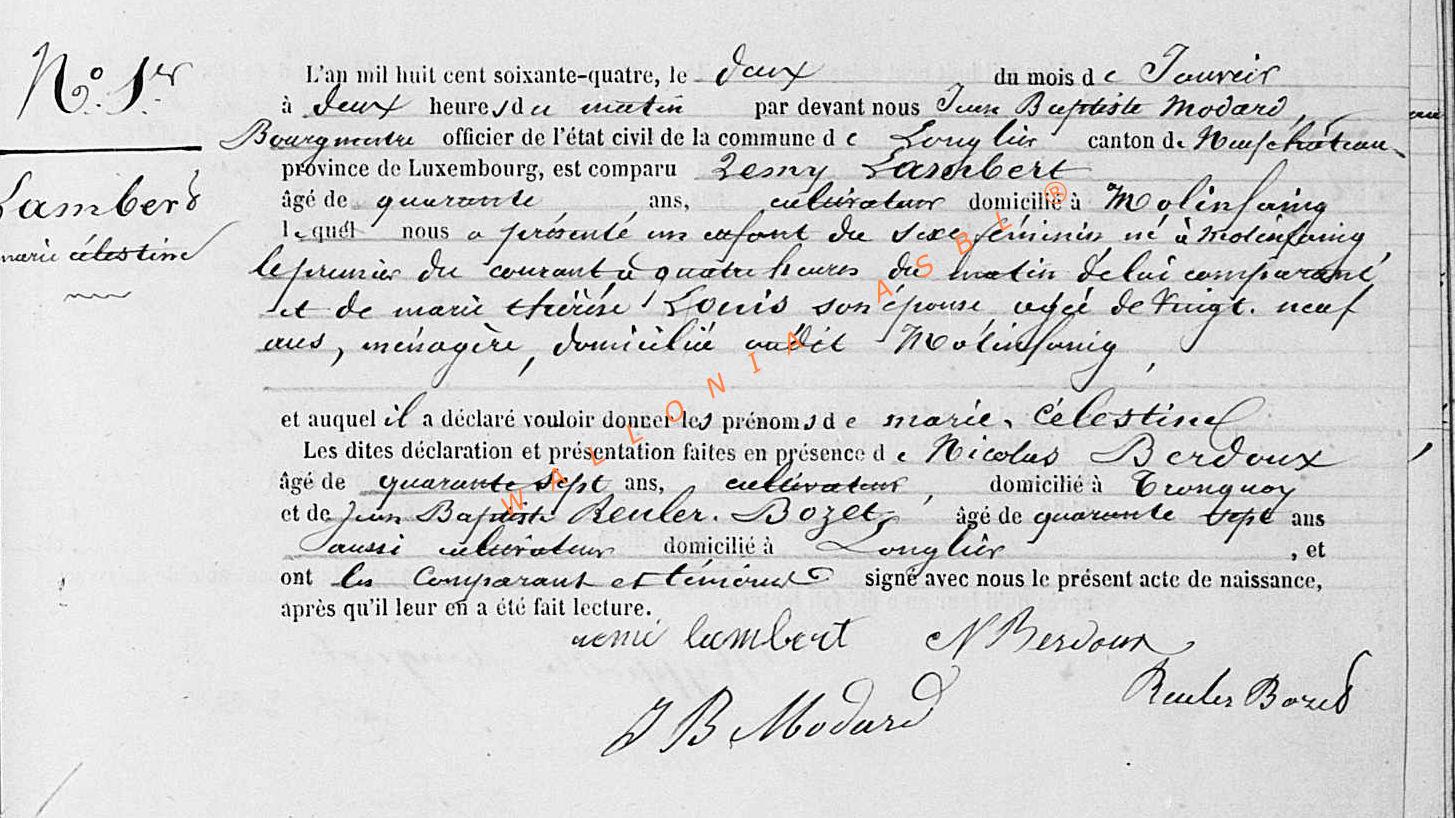 N.º 1.er
Lambert
marie célestine
L'an mil huit cent soixante-quatre, le deux du mois de Janveir
à deux heures du matin par devant nous Jean Baptiste Modard,
Bourgmestre officier de l'état civil de la commune de Longlier canton de Neufchâteau
province de Luxembourg, est comparu Remy Lambert
âgé de quarante ans, cultivateur domicilié à Molinfaing
lequel nous a présenté un enfant du sexe féminin né à Molinfaing
le premier du courant à quatre heures du matin de lui comparant
et de marie thérèse Louis son épouse agée de vingt. neuf
ans, ménagère, domicilié audit Molinfaing,
et auquel il a déclaré vouloir donner les prénoms de marie, célestine
Les dites déclaration et présentation faites en présence de Nicolas Berdoux
âgé de quarante sept ans, cultivateur, domicilié à Tronquoy
et de Jean Baptiste Reuler. Bozet, âgé de quarante sept ans
aussi cultivateur domicilié à Longlier, et
ont les Comparant et témoins signé avec nous le présent acte de naissance,
après qu'il leur en a été fait lecture.
remi lambert N Berdoux
Reuler Bozet
J B Modard
WALLONIA ASBL ®